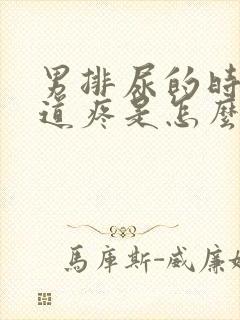 男排尿的時
道疼是怎麼
馬庫斯-威廉